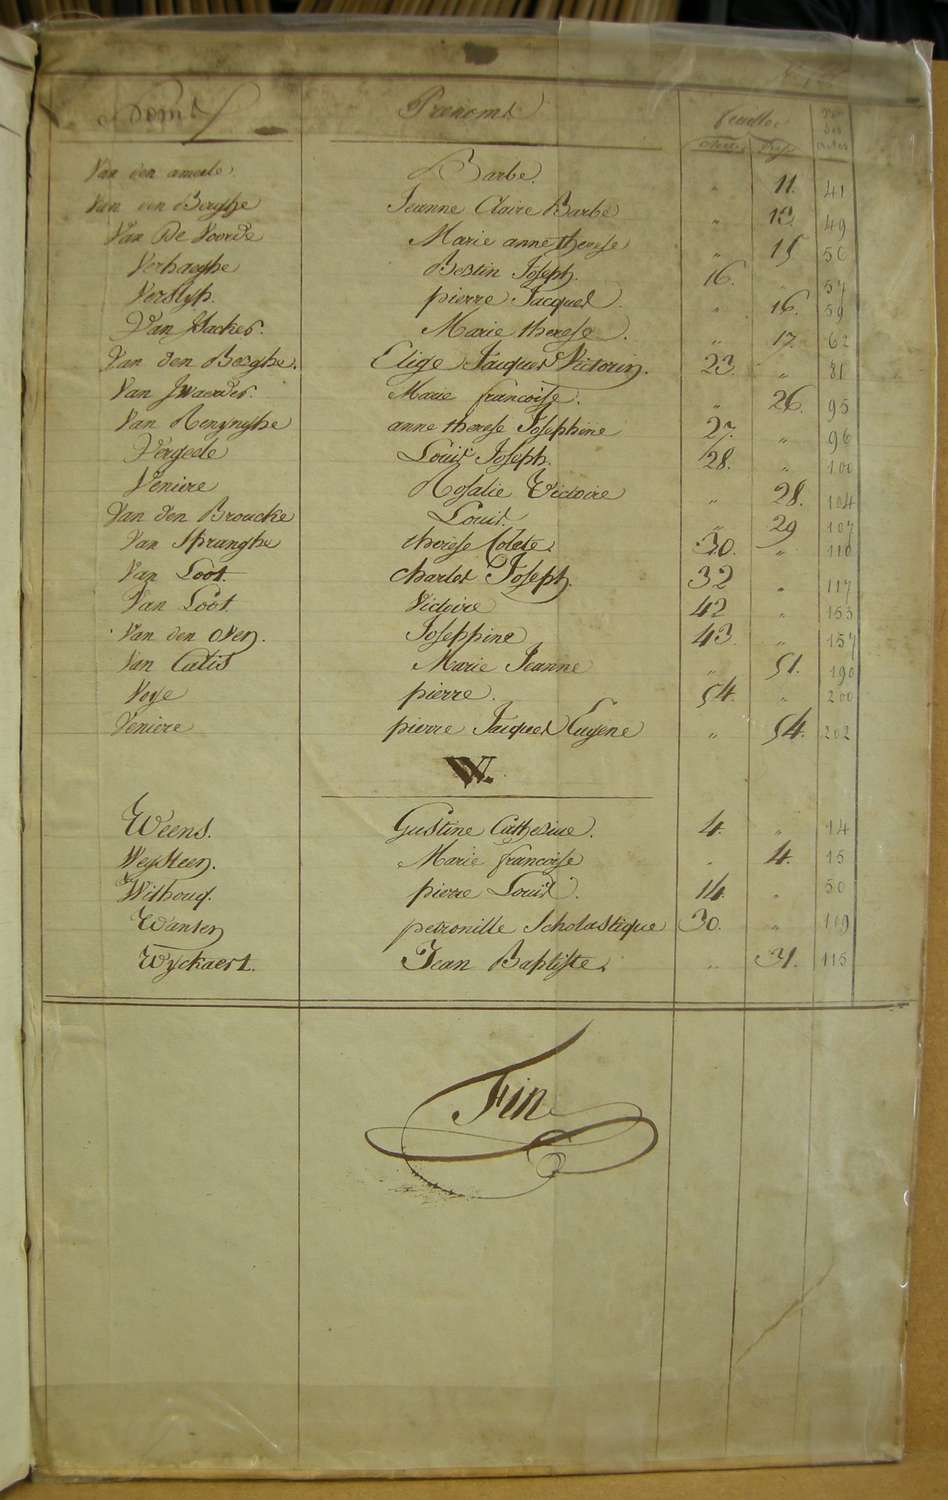 Prenoms feuilles Nos des actes
Recto Verso
Van den amele. Barbe. " 11. 41
Van den Berghe Jeanne Claire Barbe " 13. 49
Van De Voorde Marie anne therese " 15 56
Verhaeghe Bestin Joseph. 16. " 57
Verslyp. pierre Jacques. " 16. 59
Van Hacker. Marie therese. " 17. 62
Van den Berghe. Elige Jacques Victorin. 23. " 81
Van Marie francoise. " 26. 95
Van Renynghe anne therese Josephine 27. " 96
Vergeele Louis Joseph. 28. " 100
Veniere Rosalie Victoire " 28. 104
Van den Broucke Louis. " 29 107
Van Spranghe therese Colete. 30. " 110
Van Loot. Charles Joseph. 32 " 117
Van Loot Victoire 42 " 155
Van den oven. Josephine 43. " 157
Van Calis Marie Jeanne " 51. 190
Veye pierre. 54. " 200
Veniere pierre Jacques Eugene " 54. 202
W.
Weens. Gustine Catherine. 4. " 14
Weysteen. Marie francoise " 4. 15
Withoug. pierre Louis. 14. " 50
Wanten petronille Scholastique 30. " 109
Wyckaert. Jean Baptiste. " 31. 115
Fin